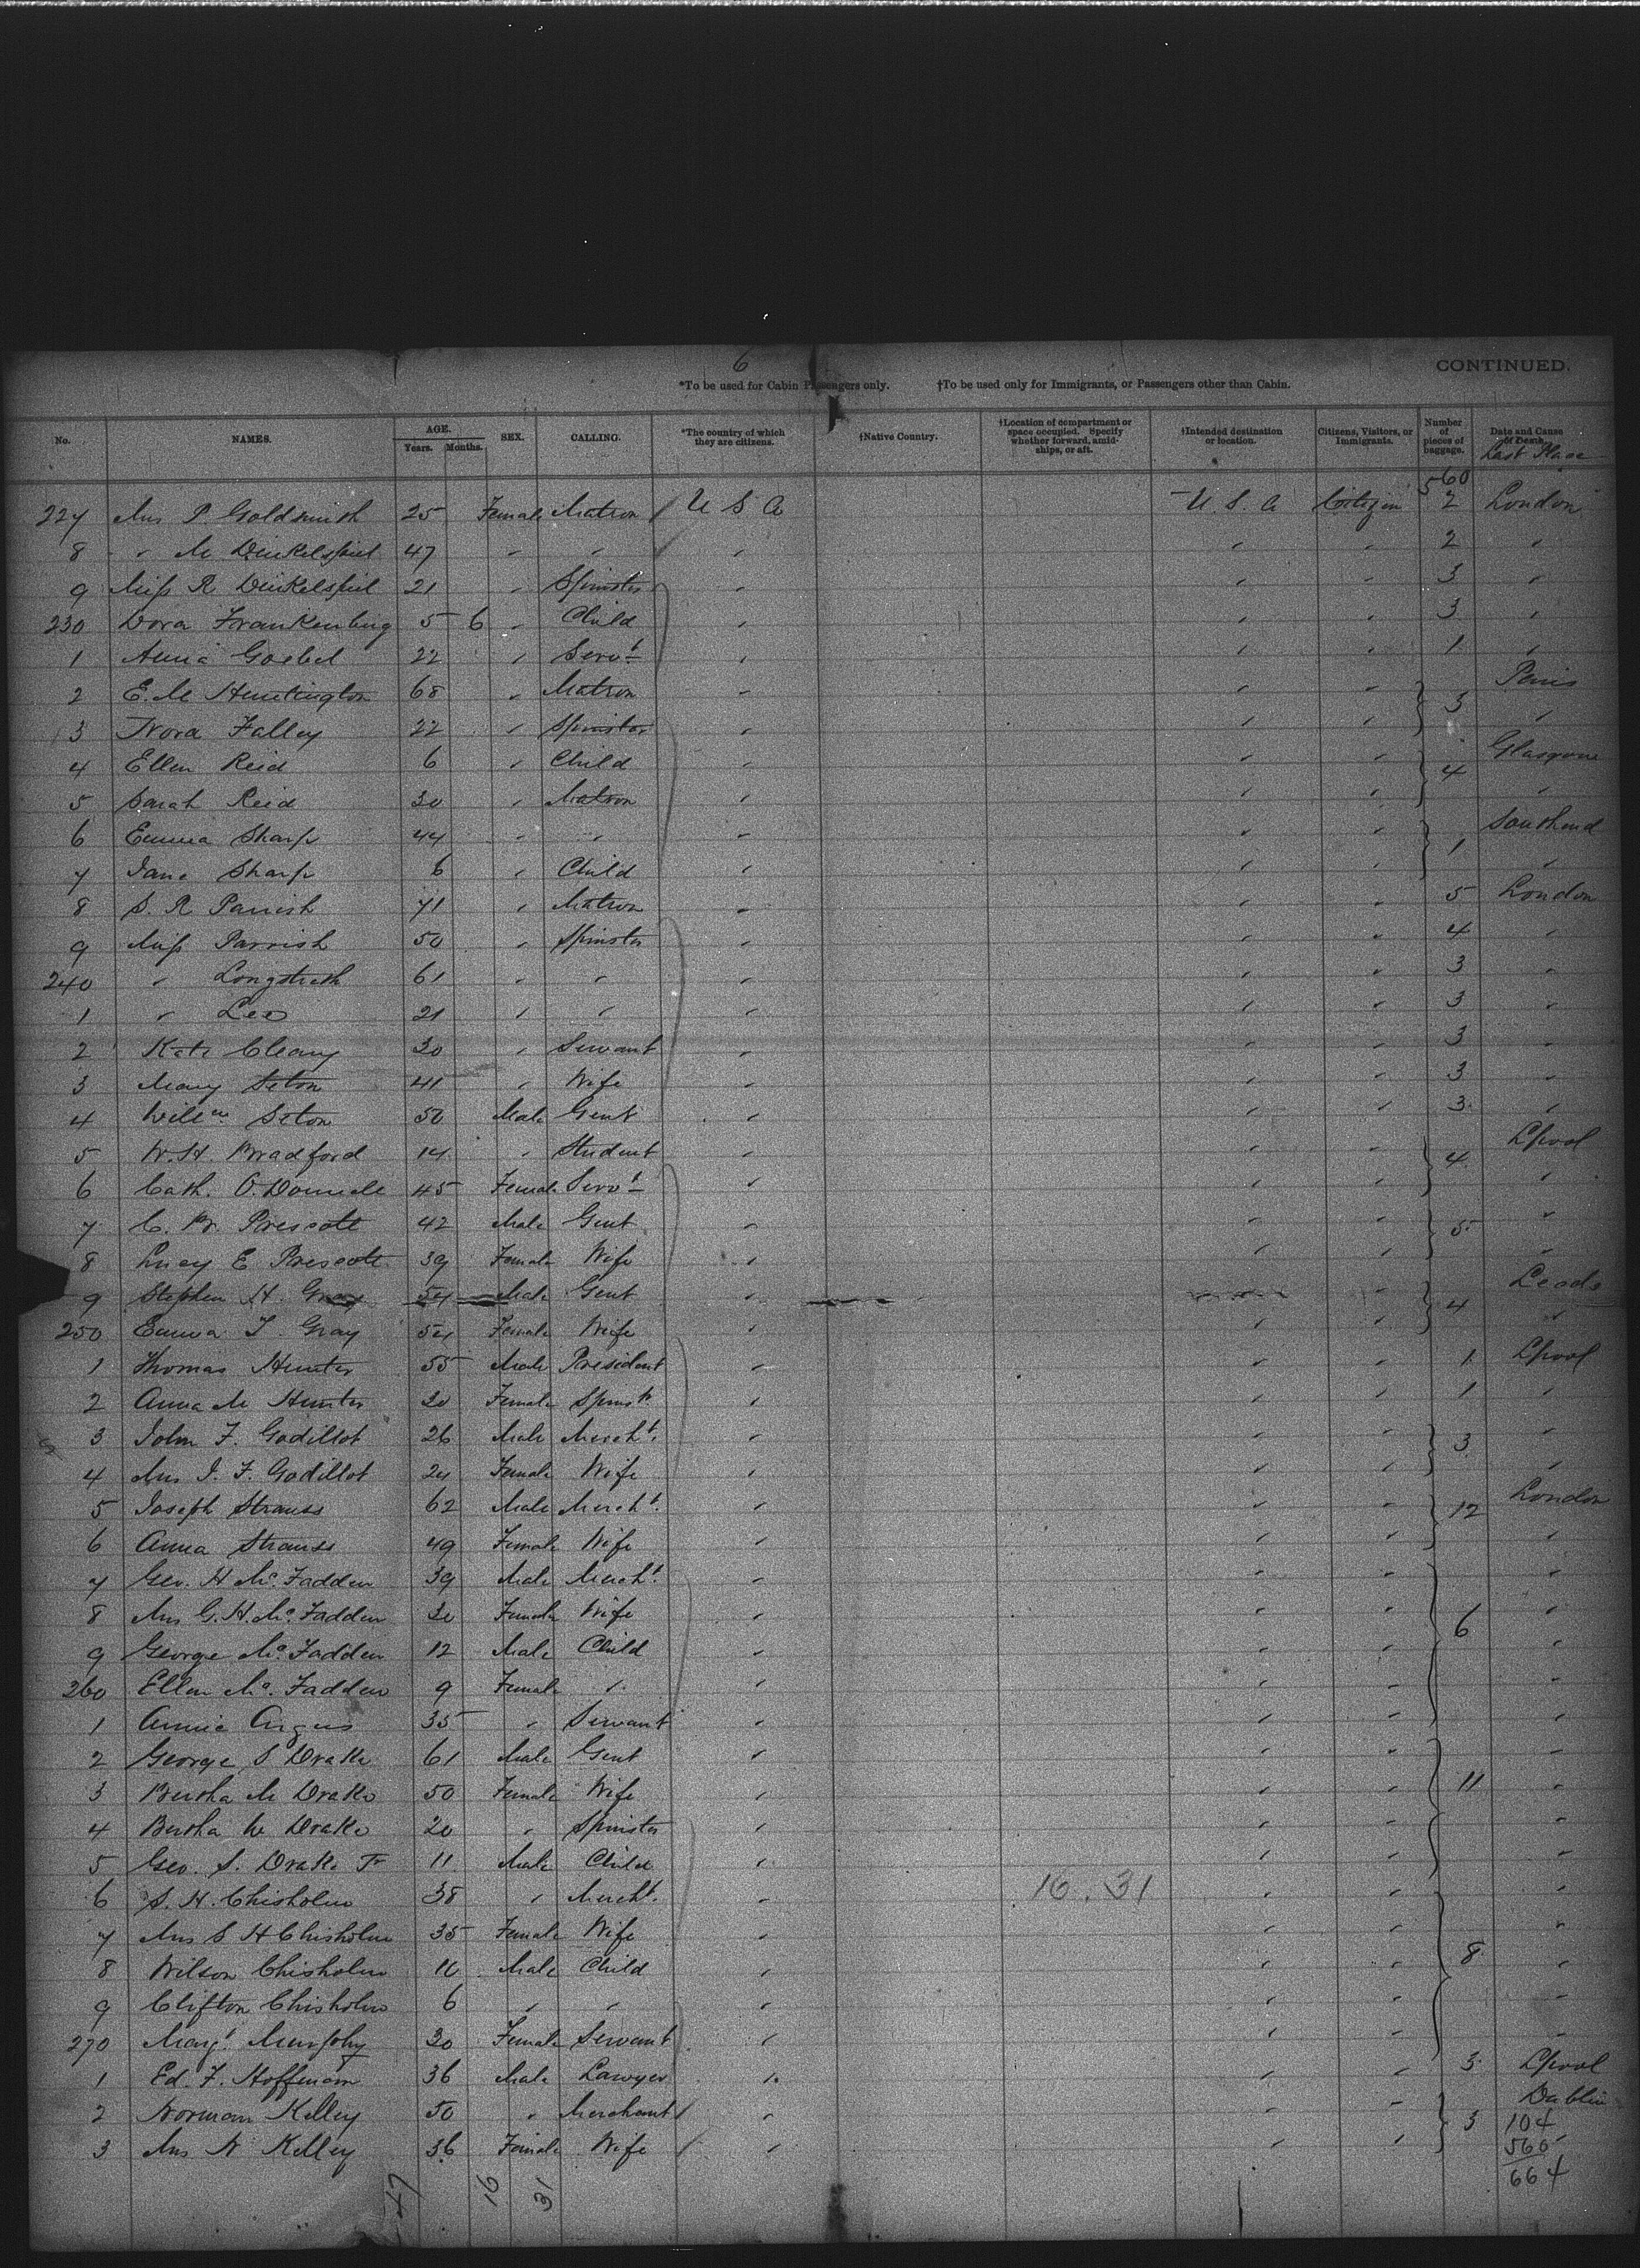 6
CONTINUED.
*To be used for Cabin Passengers only. †To be used only for Immigrants, or Passengers other than Cabin.
No. NAMES. AGE. Years. Months. SEX. CALLING. *The country of which they are citizens. †Native Country. †Location of compartment or space occupied. Specify whether forward, amidships, or aft. †Intended destination or location. Citizens, Visitors, or Immigrants. Number of pieces of baggage. Date and Cause of Death.
Last Place
560
227 Mrs P. Goldsmith 25 Female Matron U S A U. S. A Citizen 2 London
8 " M Dinkelspiel 47 " " " " " 2 "
9 Miss R Dinkelspiel 21 " Spinster " " " 3 "
230 Dora Frankenburg 5 6 " Child " " " 3 "
1 Anna Goebel 22 " Servt " " " 1 "
2 E. M Huntington 68 " Matron " " " Paris
3 Nora Falley 22 " Spinster " " " 3 "
4 Ellen Reid 6 " Child " " " Glasgow
5 Sarah Reid 30 " Matron " " " 4 "
6 Emma Sharp 44 " " " " " Southend
7 Jane Sharp 6 " Child " " " 1 "
8 S. R Parrish 71 " Matron " " " 5 London
9 Miss Parrish 50 " Spinster " " " 4 "
240 " Longstreth 61 " " " " " 3 "
1 " Lee 21 " " " " " 3 "
2 Kate Cleary 30 " Servant " " " 3 "
3 Mary Seton 41 " Wife " " " 3 "
4 Willm Seton 50 Male Gent " " " 3 "
5 W. H. Bradford 14 " Student " " " Lpool
6 Cath. O.Donnell 45 Female Servt " " " 4 "
7 C. W. Prescott 42 Male Gent " " " "
8 Lucy E Prescott 39 Female Wife " " " 5 "
9 Stephen H. Gray 54 Male Gent " " Leeds
250 Emma T. Gray 54 Female Wife " " " 4 "
1 Thomas Hunter 55 Male President " " " 1 Lpool
2 Anna M Hunter 20 Female Spinstr " " " 1 "
3 John F. Godillot 26 Male Mercht. " " " "
4 Mrs J. F. Godillot 24 Female Wife " " " 3 "
5 Joseph Strauss 62 Male Mercht. " " " 12 London
6 Anna Strauss 49 Female Wife " " " "
7 Geo. H Mc.Fadden 39 Male Mercht. " " " "
8 Mrs G. H. Mc.Fadden 30 Female Wife " " " 6 "
9 George Mc.Fadden 12 Male Child " " " "
260 Ellen Mc.Fadden 9 Female " " " " "
1 Annie Angus 35 " Servant " " " "
2 George S Drake 61 Male Gent " " " "
3 Bertha M Drake 50 Female Wife " " " 11 "
4 Bertha W Drake 20 " Spinster " " " "
5 Geo. S. Drake Jr 11 Male Child " " " "
6 S. H. Chisholm 38 " Mercht. " 16.31 " " "
7 Mrs S H Chisholm 35 Female Wife " " " "
8 Wilson Chisholm 10 Male Child " " " 8 "
9 Clifton Chisholm 6 " " " " " "
270 Margt. Murphy 30 Female Servant " " " "
1 Ed. F. Hoffman 36 Male Lawyer " " " 3 Lpool
2 Norman Kelley 50 " Merchant " " " Dublin
3 Mrs N Kelley 36 Female Wife " " " 3 "
104
560
664
47 16 31